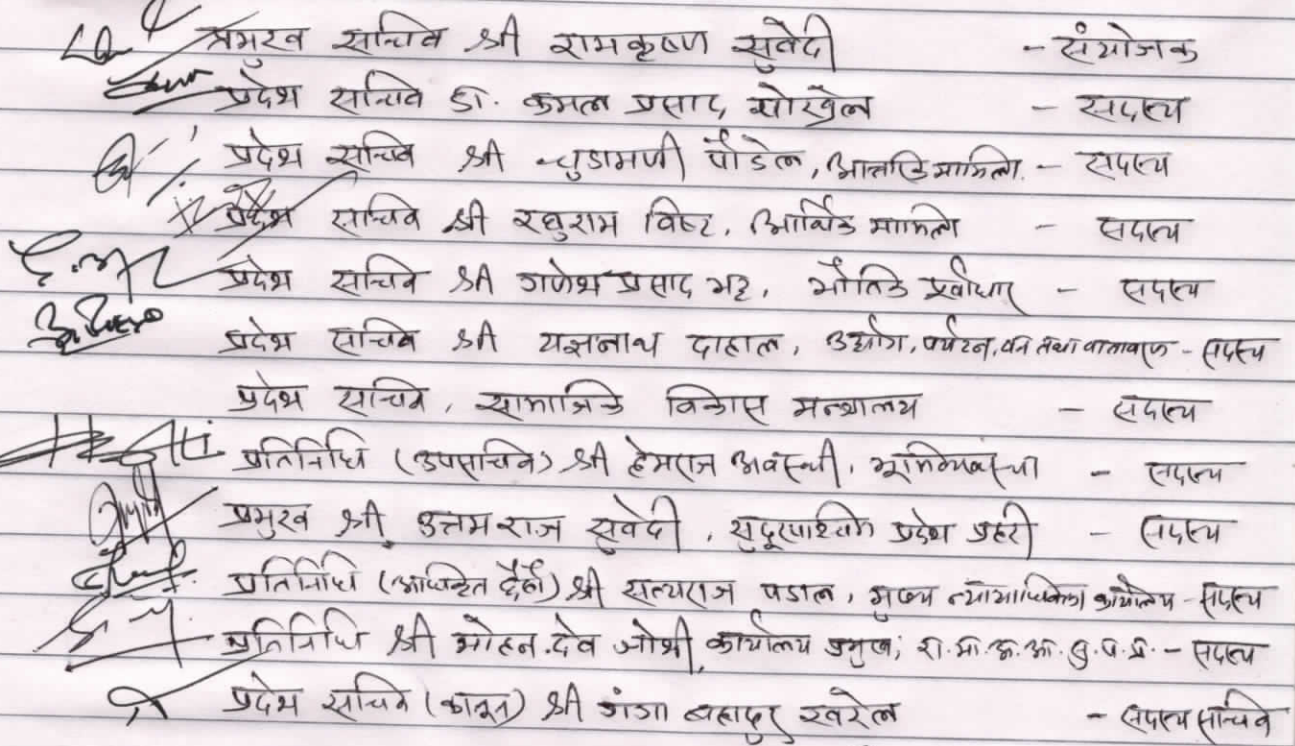 प्रमुख सचिव श्री रामकृष्ण सुवेदी - संयोजक
प्रदेश सचिव डा. कमल प्रसाद पोखरेल - सदस्य
प्रदेश सचिव श्री चुडामणी पौडेल, आन्तरिक मामिला - सदस्य
प्रदेश सचिव श्री रघुराम विष्ट, आर्थिक मामिला - सदस्य
प्रदेश सचिव श्री गणेश प्रसाद भट्ट, भौतिक पूर्वाधार - सदस्य
प्रदेश सचिव श्री यज्ञनाथ दाहाल, उद्योग, पर्यटन, वन तथा वातावरण - सदस्य
प्रदेश सचिव, सामाजिक विकास मन्त्रालय - सदस्य
प्रतिनिधि (उपसचिव) श्री हेमराज अवस्थी, भूमिव्यवस्था - सदस्य
प्रमुख श्री उत्तमराज सुवेदी, सुदूरपश्चिम प्रदेश प्रहरी - सदस्य
प्रतिनिधि श्री सत्यराज पडाल, मुख्य न्यायाधिवक्ता कार्यालय - सदस्य
प्रतिनिधि श्री मोहन देव जोशी, कार्यालय प्रमुख, - सदस्य
प्रदेश सचिव (कानून) श्री गंगा बहादुर खरेल - सदस्य सचिव